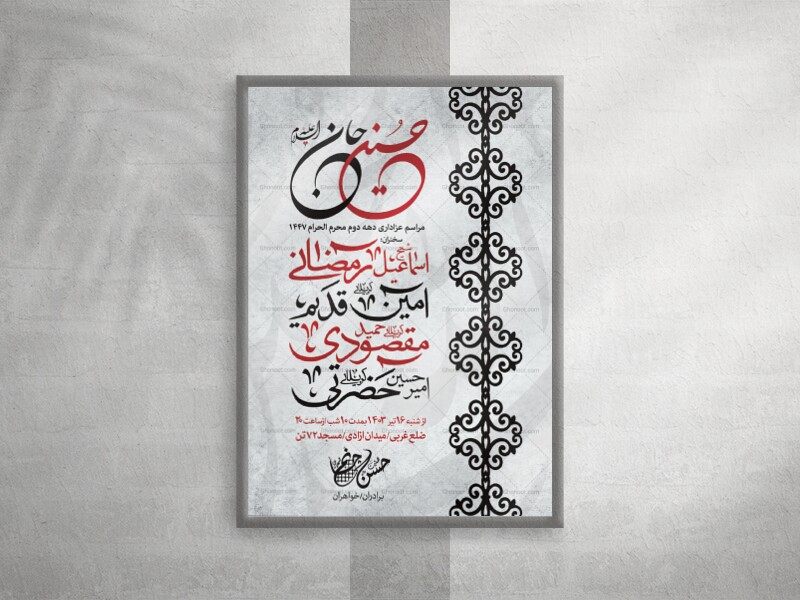 حسین جان
علیه السلام
مراسم عزاداری دهه دوم محرم الحرام ۱۴۴۷
سخنران:
شیخ اسماعیل رمضانی
کربلائی امین قدیم
کربلائی حمید مقصودی
کربلائی امیر حسین حضرتی
از شنبه ۱۶ تیر ۱۴۰۳ بمدت ۱۰ شب از ساعت ۲۰
ضلع غربی/میدان آزادی/مسجد ۷۲ تن
برادران/خواهران